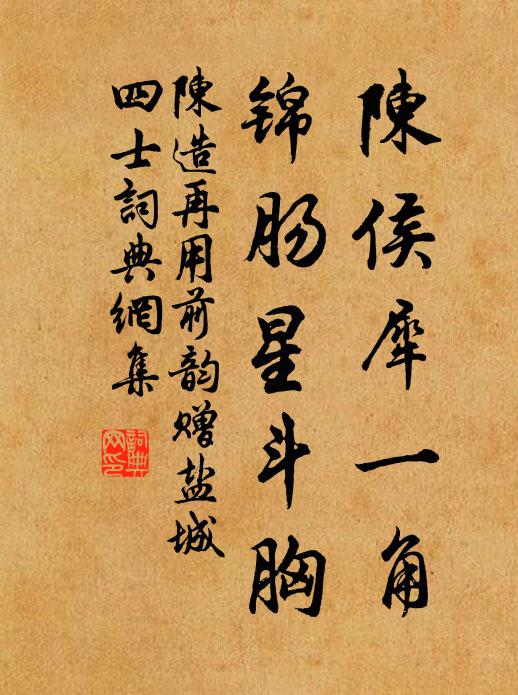 陳侯犀一角
锦肠星斗胸
陳造再用前韵赠盐城
四士詞典網集
詞典網印